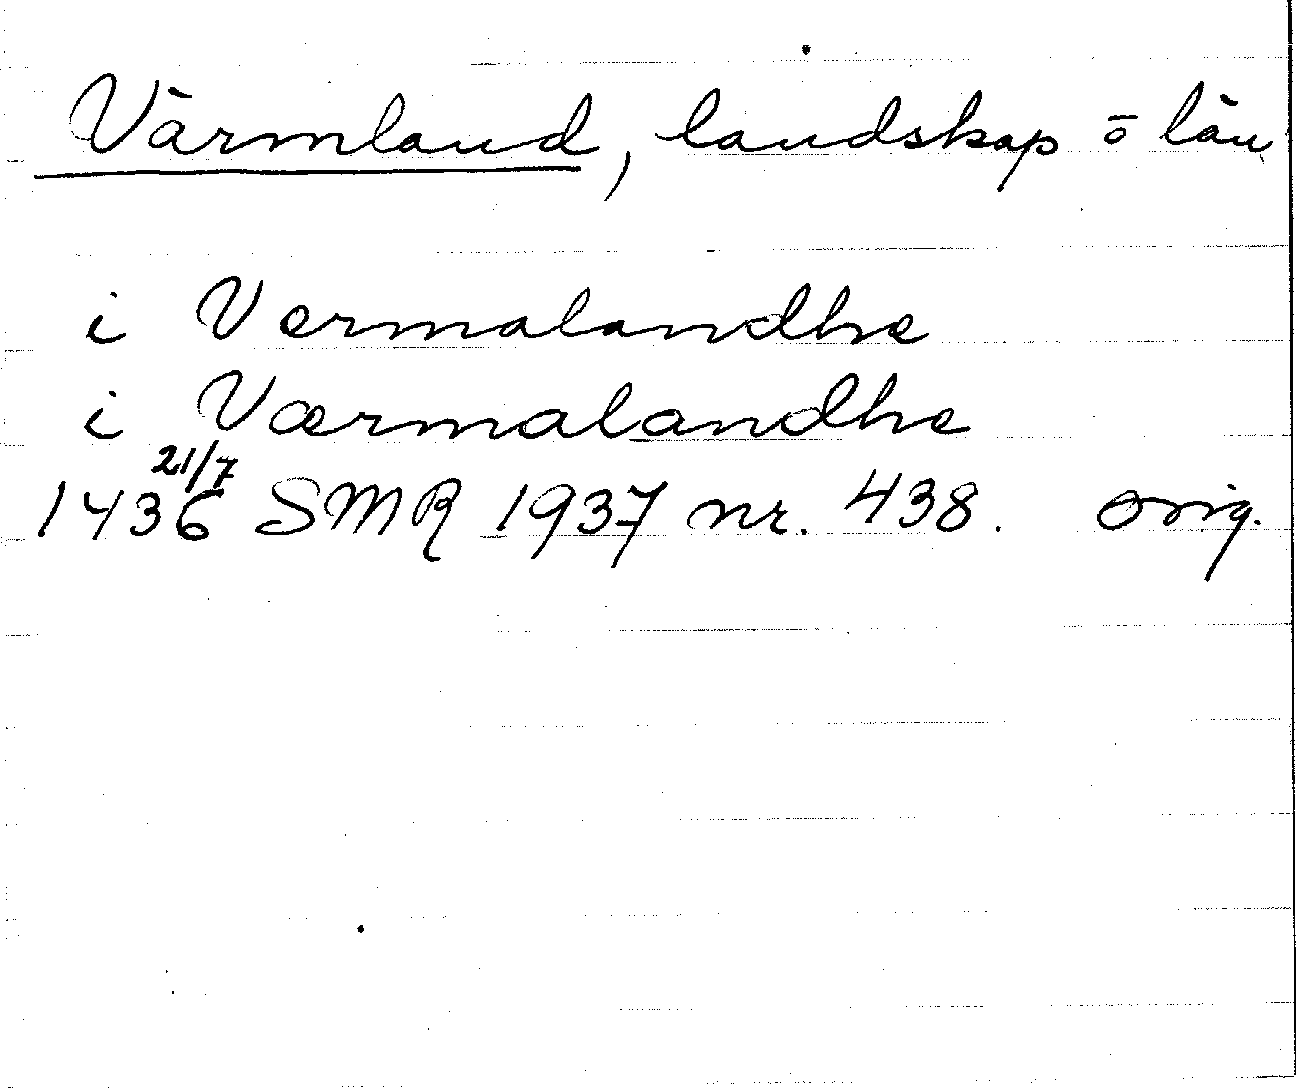 Värmland, landskap ō län
i Vermalandhe
i Værmalandhe
21/7
1436 SMR 1937 nr. 438. orig.